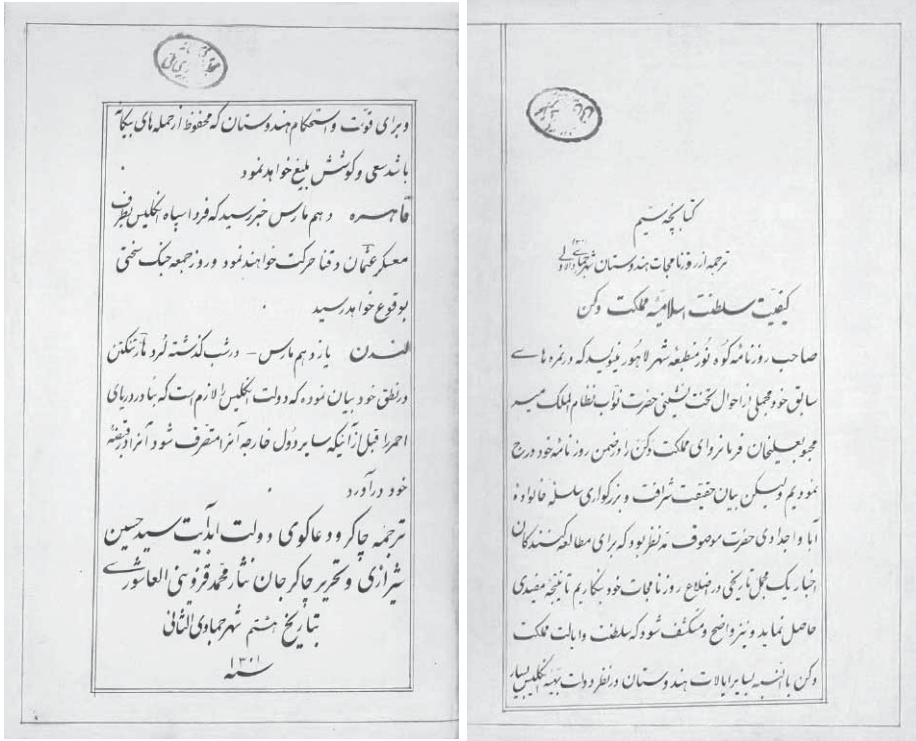 کتابچه سیم
ترجمه از روزنامجات هندوستان شهر جمادی الاولی
کیفیت سلطنت اسلامیه مملکت دکن
صاحب روزنامه کوه نور منطبعه شهر لاهور مینویسد که در نمره های
سابق خود مجملی از احوال تخت نشینی حضرت نواب نظام الملک میر
محبوبعلیخان فرمانروای مملکت دکن را در ضمن روزنامه خود درج
نمودیم ولیکن بیان حقیقت شرافت و بزرکواری سلسله خانواده
آبا و اجدادی حضرت موصوف مد نظر بود که برای مطالعه کنندکان
اخبار یک مجمل تاریخی در اضلاع روزنامجات خود بنکاریم تا نتیجه مفیدی
حاصل نماید و نیز واضح و منکشف شود که سلطنت و ایالت مملکت
دکن بالنسبه بسایر ایالات هندوستان در نظر دولت بهیه انکلیس بسیار
و برای قوّت و استحکام هندوستان که محفوظ از حمله های بیکانه
باشد سعی و کوشش بلیغ خواهد نمود
قاهره دهم مارس خبر رسید که فردا سپاه انکلیس بطرف
معسکر عثمان دقنا حرکت خواهند نمود و روز جمعه جنک سختی
بوقوع خواهد رسید
لندن یازدهم مارس - در شب کذشته لُرد هارتنکتن
در نطق خود بیان نموده که دولت انکلیس را لازم است که بنادر دریای
احمر را قبل از آنیکه سایر دُول خارجه آنرا متصرف شود آنرا در قبضه
خود درآورد
ترجمه چاکر و دعاکوی دولت ابدآیت سید حسین
شیرازی و تحریر چاکر جان نثار محمد قزوینی العاشوری
بتاریخ هشتم شهر جمادی الثانی
سنه ۱۳۰۱